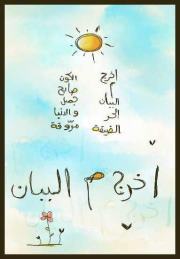 إخرج
م
البيبان
الضيقة
الكون
جميل
والدنيا
مزوقة
اخرج م البيبان